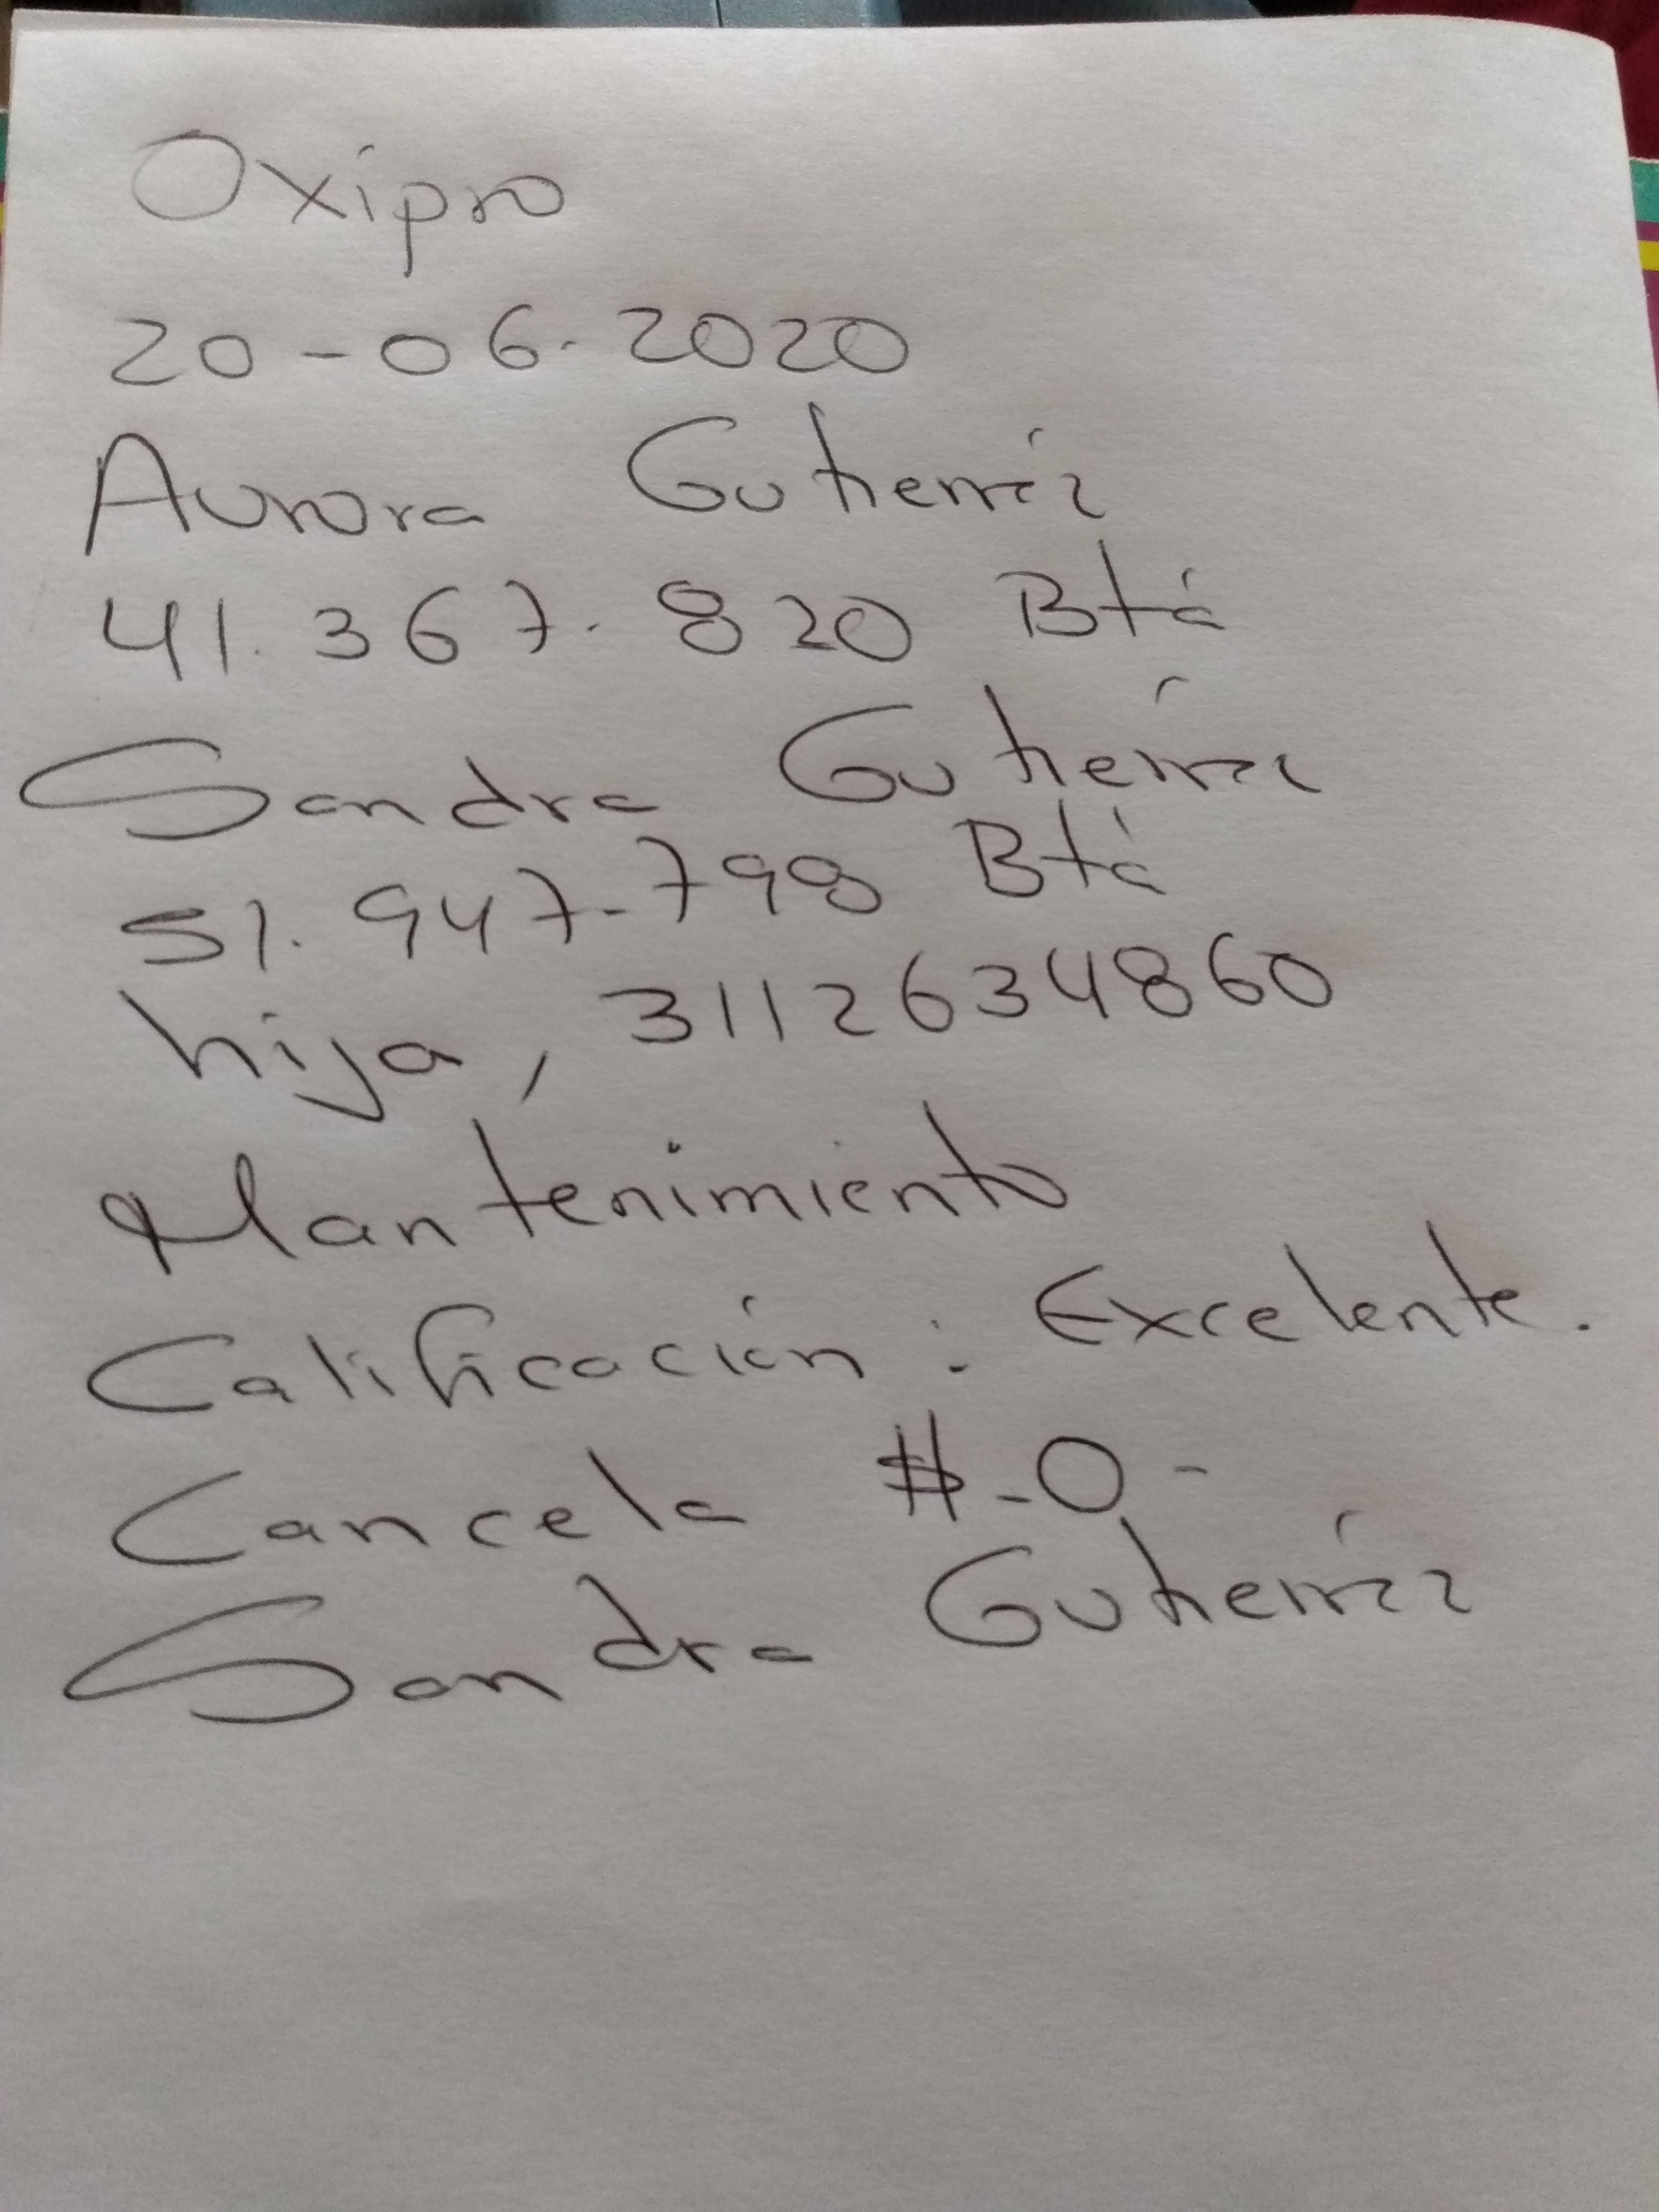 Oxipro
20-06-2020
Aurora Gutierréz
41.367.820 Btá
Sandra Gutierréz
51.947.798 Btá
hija, 3112634860
Mantenimiento
Calificación: Excelente.
Cancela $-0-
Sandra Gutierréz